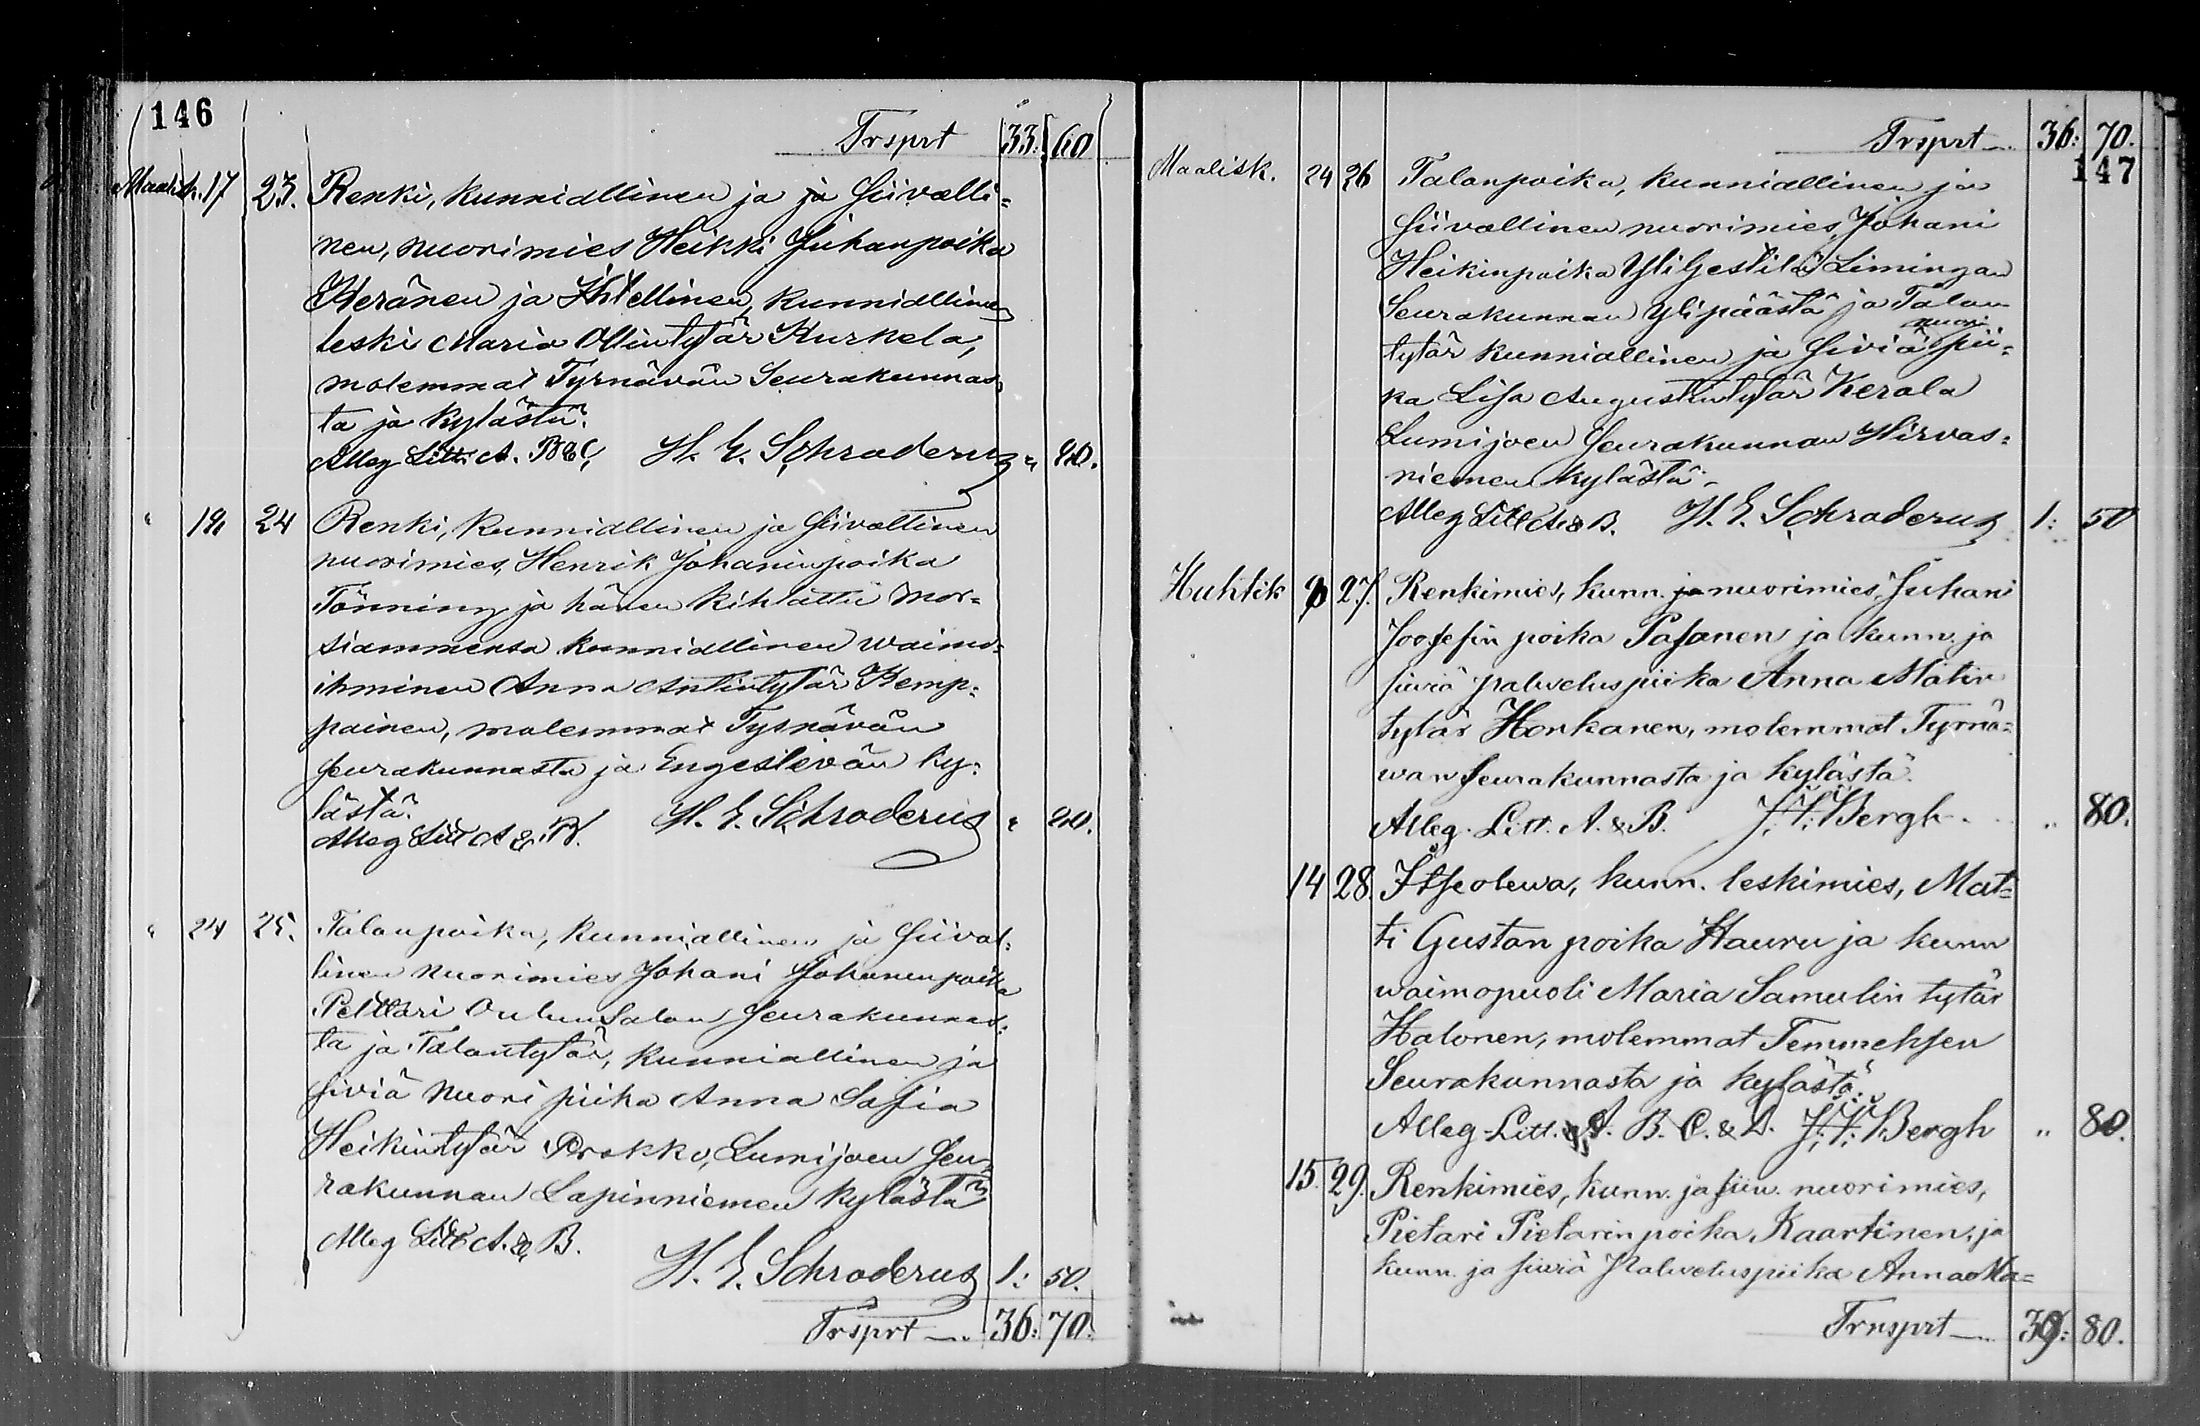 146
Trsprt 33: 60
Maalisk. 17 23. Renki, kunniallinen ja ja siivalli=
nen, nuorimies Heikki Juhanpoika
Keränen ja Ihtellinen, kunniallinen
leski Maria Ollintytär Kurkela,
molemmat Tyrnävän Seurakunnas
ta ja kylästä.
Alleg Litt. A. B & C, H. E. Schroderus " 80.
" 19 24 Renki, kunniallinen ja siivallinen
nuorimies, Henrik Johaninpoika
Tönning ja hänen kihlattu mor=
siammensa kunniallinen waimo=
ihminen Anna Antintytär Kemp=
painen, molemmat Tyrnävän
seurakunnasta ja Engeslevän ky=
lästä.
Alleg Litt A & B. H. E. Schroderus " 80.
" 24 25. Talonpoika, kunniallinen ja siival=
linen nuorimies Johani Johanenpoika
Pelttari Oulunsalon seurakunnas=
ta ja Talontytär, kunniallinen ja
siviä nuori piika Anna Sofia
Heikintytär Prokko, Lumijoen seu=
rakunnan Lapinniemen kylästä
Alleg Litt A. & B.
H. E. Schroderus 1: 50.
Trsprt 36: 70.
Trsprt 36: 70.
147
Maalisk. 24 26 Talonpoika, kunniallinen ja
siivallinen nuorimies, Johani
Heikinpoika Yligestilä Limingan
Seurakunnan Ylipäästä ja Talon
tytär kunniallinen ja siviä nuori pii=
ka Lisa Augustintytär Kerala
Lumijoen seurakunnan Hirvas=
niemen kylästä.
Alleg Litt A & B. H. E. Schroderus 1: 50
Huhtik 9 27. Renkimies, kunn. ja nuorimies, Juhani
Joosefin poika Pasanen ja kunn. ja
siwiä palweluspiika Anna Matin
tytär Honkanen, molemmat Tyrnä=
wan seurakunnasta ja kylästä.
Alleg. Litt. A. & B. J. V. Bergh. " 80.
14 28. Itseolewa, kunn. leskimies, Mat=
ti Gustan poika Hauru ja kunn
waimopuoli Maria Samulin tytär
Halonen, molemmat Temmeksen
Seurakunnasta ja kylästä.
Alleg. Litt. A. B. C. & D. J. V. Bergh " 80.
15. 29. Renkimies, kunn. ja siiw. nuorimies,
Pietari Pietarin poika, Kaartinen, ja
kunn. ja siwiä Palweluspiika Anna Ma=
Trnsprt 39: 80.